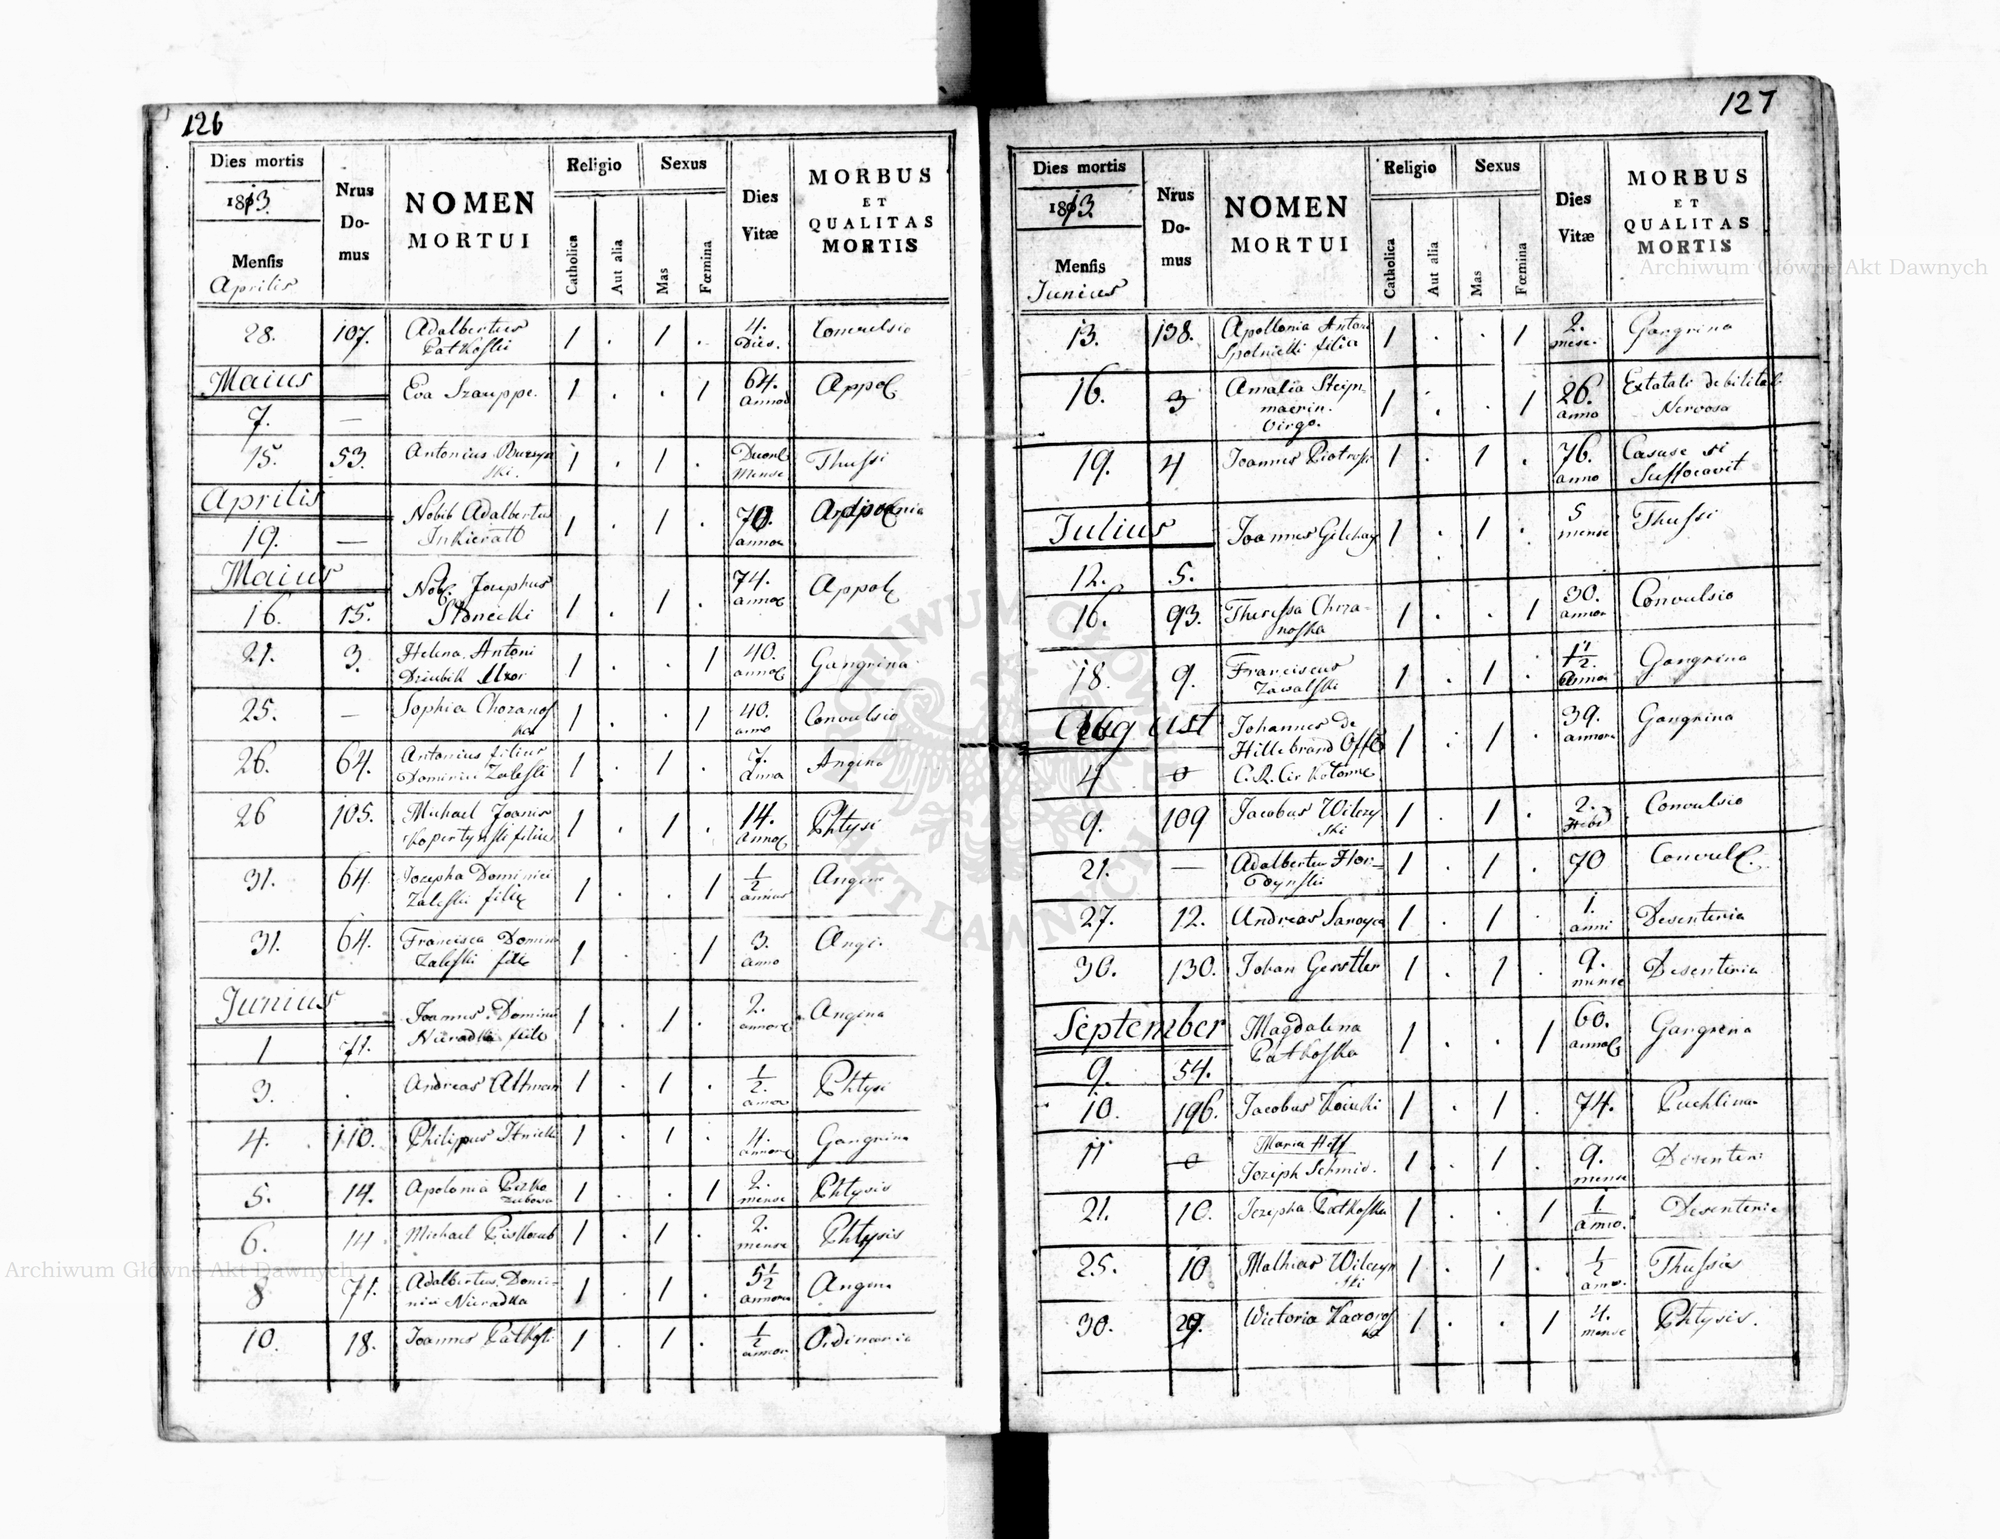 126
Dies mortis
1813.
Mensis
Aprilis
Nrus
Do-
mus
NOMEN
MORTUI
Religio
Catholica
Aut alia
Sexus
Mas
Fœmina
Dies
Vitæ
MORBUS
ET
QUALITAS
MORTIS
28. 107. Adalbertus 1 . 1 . 4. Convulsio
Patkoski Dies.
Maius
7. — Eva Szauppe. 1 . . 1 64. Appol
annos
15. 53. Antonius 1 . 1 . Thussi
ski. Mense
Aprilis
19. — Nobil Adalbertus 1 . 1 . 70.
annor
Maius
16. 15. Nob. Josephus 1 . 1 . 74. Appol
Słonecki annor
21. 3. Helena Antoni 1 . . 1 40. Gangrina
Dziubik Uxor annor
25. — Sophia Chozanos 1 . . 1 40. Convulsio
ka anno
26. 64. Antonius filius 1 . 1 . 7. Angina
Dominici Zaleski anno
26 105. Michael Joanis 1 . 1 . 14. Phtysi
Kopertynski filius annor
31. 64. Jozepha Dominici 1 . . 1 1/2 Angin
Zaleski filia annius
31. 64. Francisca Domin 1 . . 1 3. Angi.
Zaleski filia anno
Junius
1 71. Joannes Domini 1 . 1 . 2. Angina
Nieradka annor
3. . Andreas Altman 1 . 1 . 1/2 Phtysi
4. 110. Philippus 1 . 1 . 4. Gangrina
annor
5. 14. Apolonia 1 . . 1 2. Phtysis
mense
6. 14 Michael Piskozub 1 . 1 . 2. Phtysis
mense
8 71. Adalbertus Domi- 1 . 1 . 5 1/2 Angina
nici Nieradka annor
10. 18. Joannes Patkoski 1 . 1 . 1/2 Ordinaria
annor
127
Dies mortis
1813.
Mensis
Junius
Nrus
Do-
mus
NOMEN
MORTUI
Religio
Catholica
Aut alia
Sexus
Mas
Fœmina
Dies
Vitæ
MORBUS
ET
QUALITAS
MORTIS
13. 138. Apollonia Antoni 1 . . 1 2. Gangrina
filia mese.
16. 3 Amalia Stein 1 . . 1 26. debilitat
maerin. anno Nervosa
Virgo.
19. 4 Joannes Piotroski 1 . 1 . 76. Casuse si
anno Suffocavit
Julius
12. 5. Joannes 1 . 1 . 5 Thussi
mense
16. 93. Theressa Chrza- 1 . . 1 30. Convulsio
noska annor
18. 9. Franciscus 1 . 1 . 1 1/2 Gangrina
Zawalski annor
August
4 0 Johannes de 1 . 1 . 39. Gangrina
Hillebrand Offi annor
C. R. Cir Kotome
9. 109 Jacobus Wilczy 1 . 1 . 2. Convulsio
ski Hebd
21. — Adalbertus Flor= 1 . 1 . 70 Convul
27. 12. Andreas Sanoyca 1 . 1 . 1. Desenteria
anni
30. 130. Johan Gerstler 1 . 1 . 9. Desenteria
mense
September
9. 54. Magdalena 1 . . 1 60. Gangrena
Patkoska annor
10. 196. Jacobus 1 . 1 . 74. Puchlina
11 0 Maria Hoff
Joziph Schmid. 1 . 1 . 9. Desenteri
mense
21. 10. Jozepha Patkoska 1 . . 1 1 Desenteria
anno.
25. 10 Mathias Wilczyn 1 . 1 . 1/2 Thussis
ski anno.
30. 29. Wictoria 1 . . 1 4. Phtysis.
mense
Archiwum Główne Akt Dawnych
Archiwum Główne Akt Dawnych
ARCHIWUM GŁÓWNE
AKT DAWNYCH